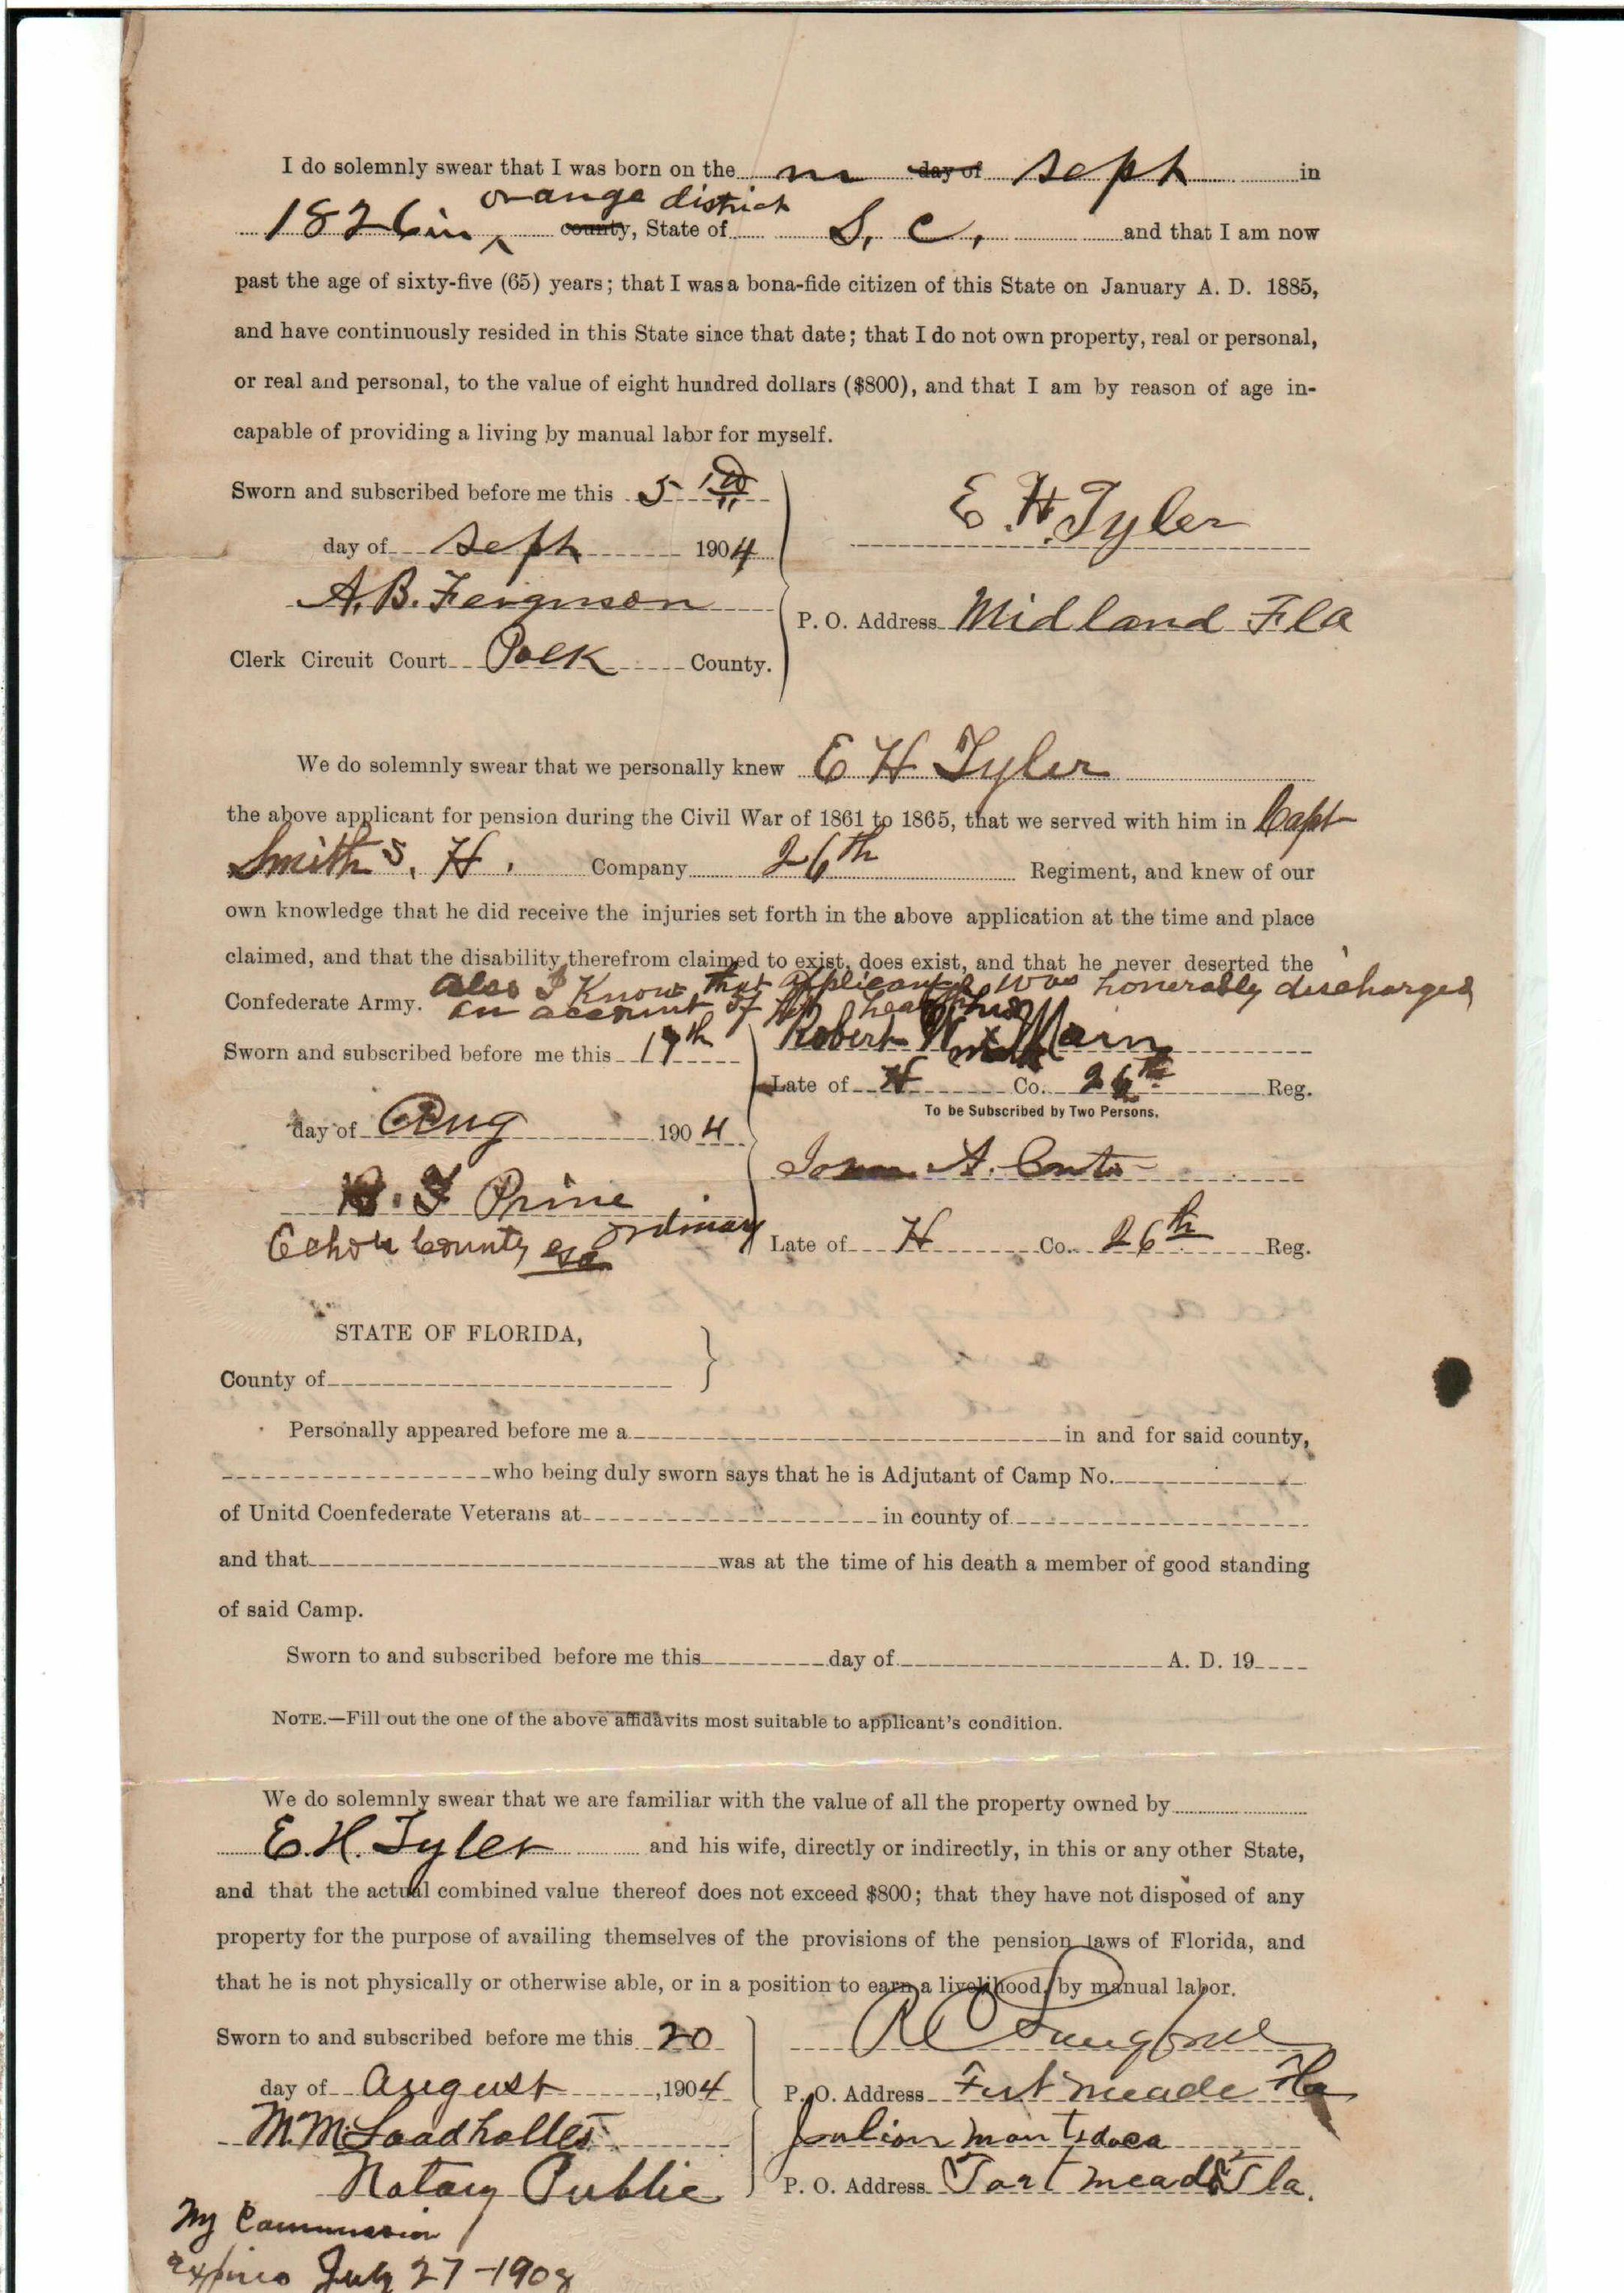 I do solemnly swear that I was born on the in day of Sept in
orange district
1826 in ^ county, State of S. C. and that I am now
past the age of sixty-five (65) years; that I was a bona-fide citizen of this State on January A. D. 1885,
and have continuously resided in this State since that date; that I do not own property, real or personal,
or real and personal, to the value of eight hundred dollars ($800), and that I am by reason of age in-
capable of providing a living by manual labor for myself.
Sworn and subscribed before me this 5
day of Sept 1904
E. H. Tyler
A. B. Ferguson
P. O. Address Midland Fla
Clerk Circuit Court Polk County.
We do solemnly swear that we personally knew E H Tyler
the above applicant for pension during the Civil War of 1861 to 1865, that we served with him in Capt
Smith s. H. Company 26th Regiment, and knew of our
own knowledge that he did receive the injuries set forth in the above application at the time and place
claimed, and that the disability therefrom claimed to exist, does exist, and that he never deserted the
Confederate Army. Also I Know that applicant was honerably discharged
on account of health
Sworn and subscribed before me this 17th
Robert W his x mark Marn
Late of H Co. 26th Reg.
To be Subscribed by Two Persons.
day of Aug 1904
A.
B. F Prine
ordinary
Echols County
Late of H Co. 26th Reg.
STATE OF FLORIDA,
County of
Personally appeared before me a in and for said county,
who being duly sworn says that he is Adjutant of Camp No.
of Unitd Coenfederate Veterans at in county of
and that was at the time of his death a member of good standing
of said Camp.
Sworn to and subscribed before me this day of A. D. 19
NOTE.—Fill out the one of the above affidavits most suitable to applicant's condition.
We do solemnly swear that we are familiar with the value of all the property owned by
E. H. Tyler and his wife, directly or indirectly, in this or any other State,
and that the actual combined value thereof does not exceed $800; that they have not disposed of any
property for the purpose of availing themselves of the provisions of the pension laws of Florida, and
that he is not physically or otherwise able, or in a position to earn a livelihood, by manual labor.
Sworn to and subscribed before me this 20
R C Langford
day of August, 1904
P. O. Address Fort Meade Fla
M. M. Loadholtes
Julion Montsdoca
Notary Public
P. O. Address Fort Meade Fla.
My Commission
expires July 27-1908